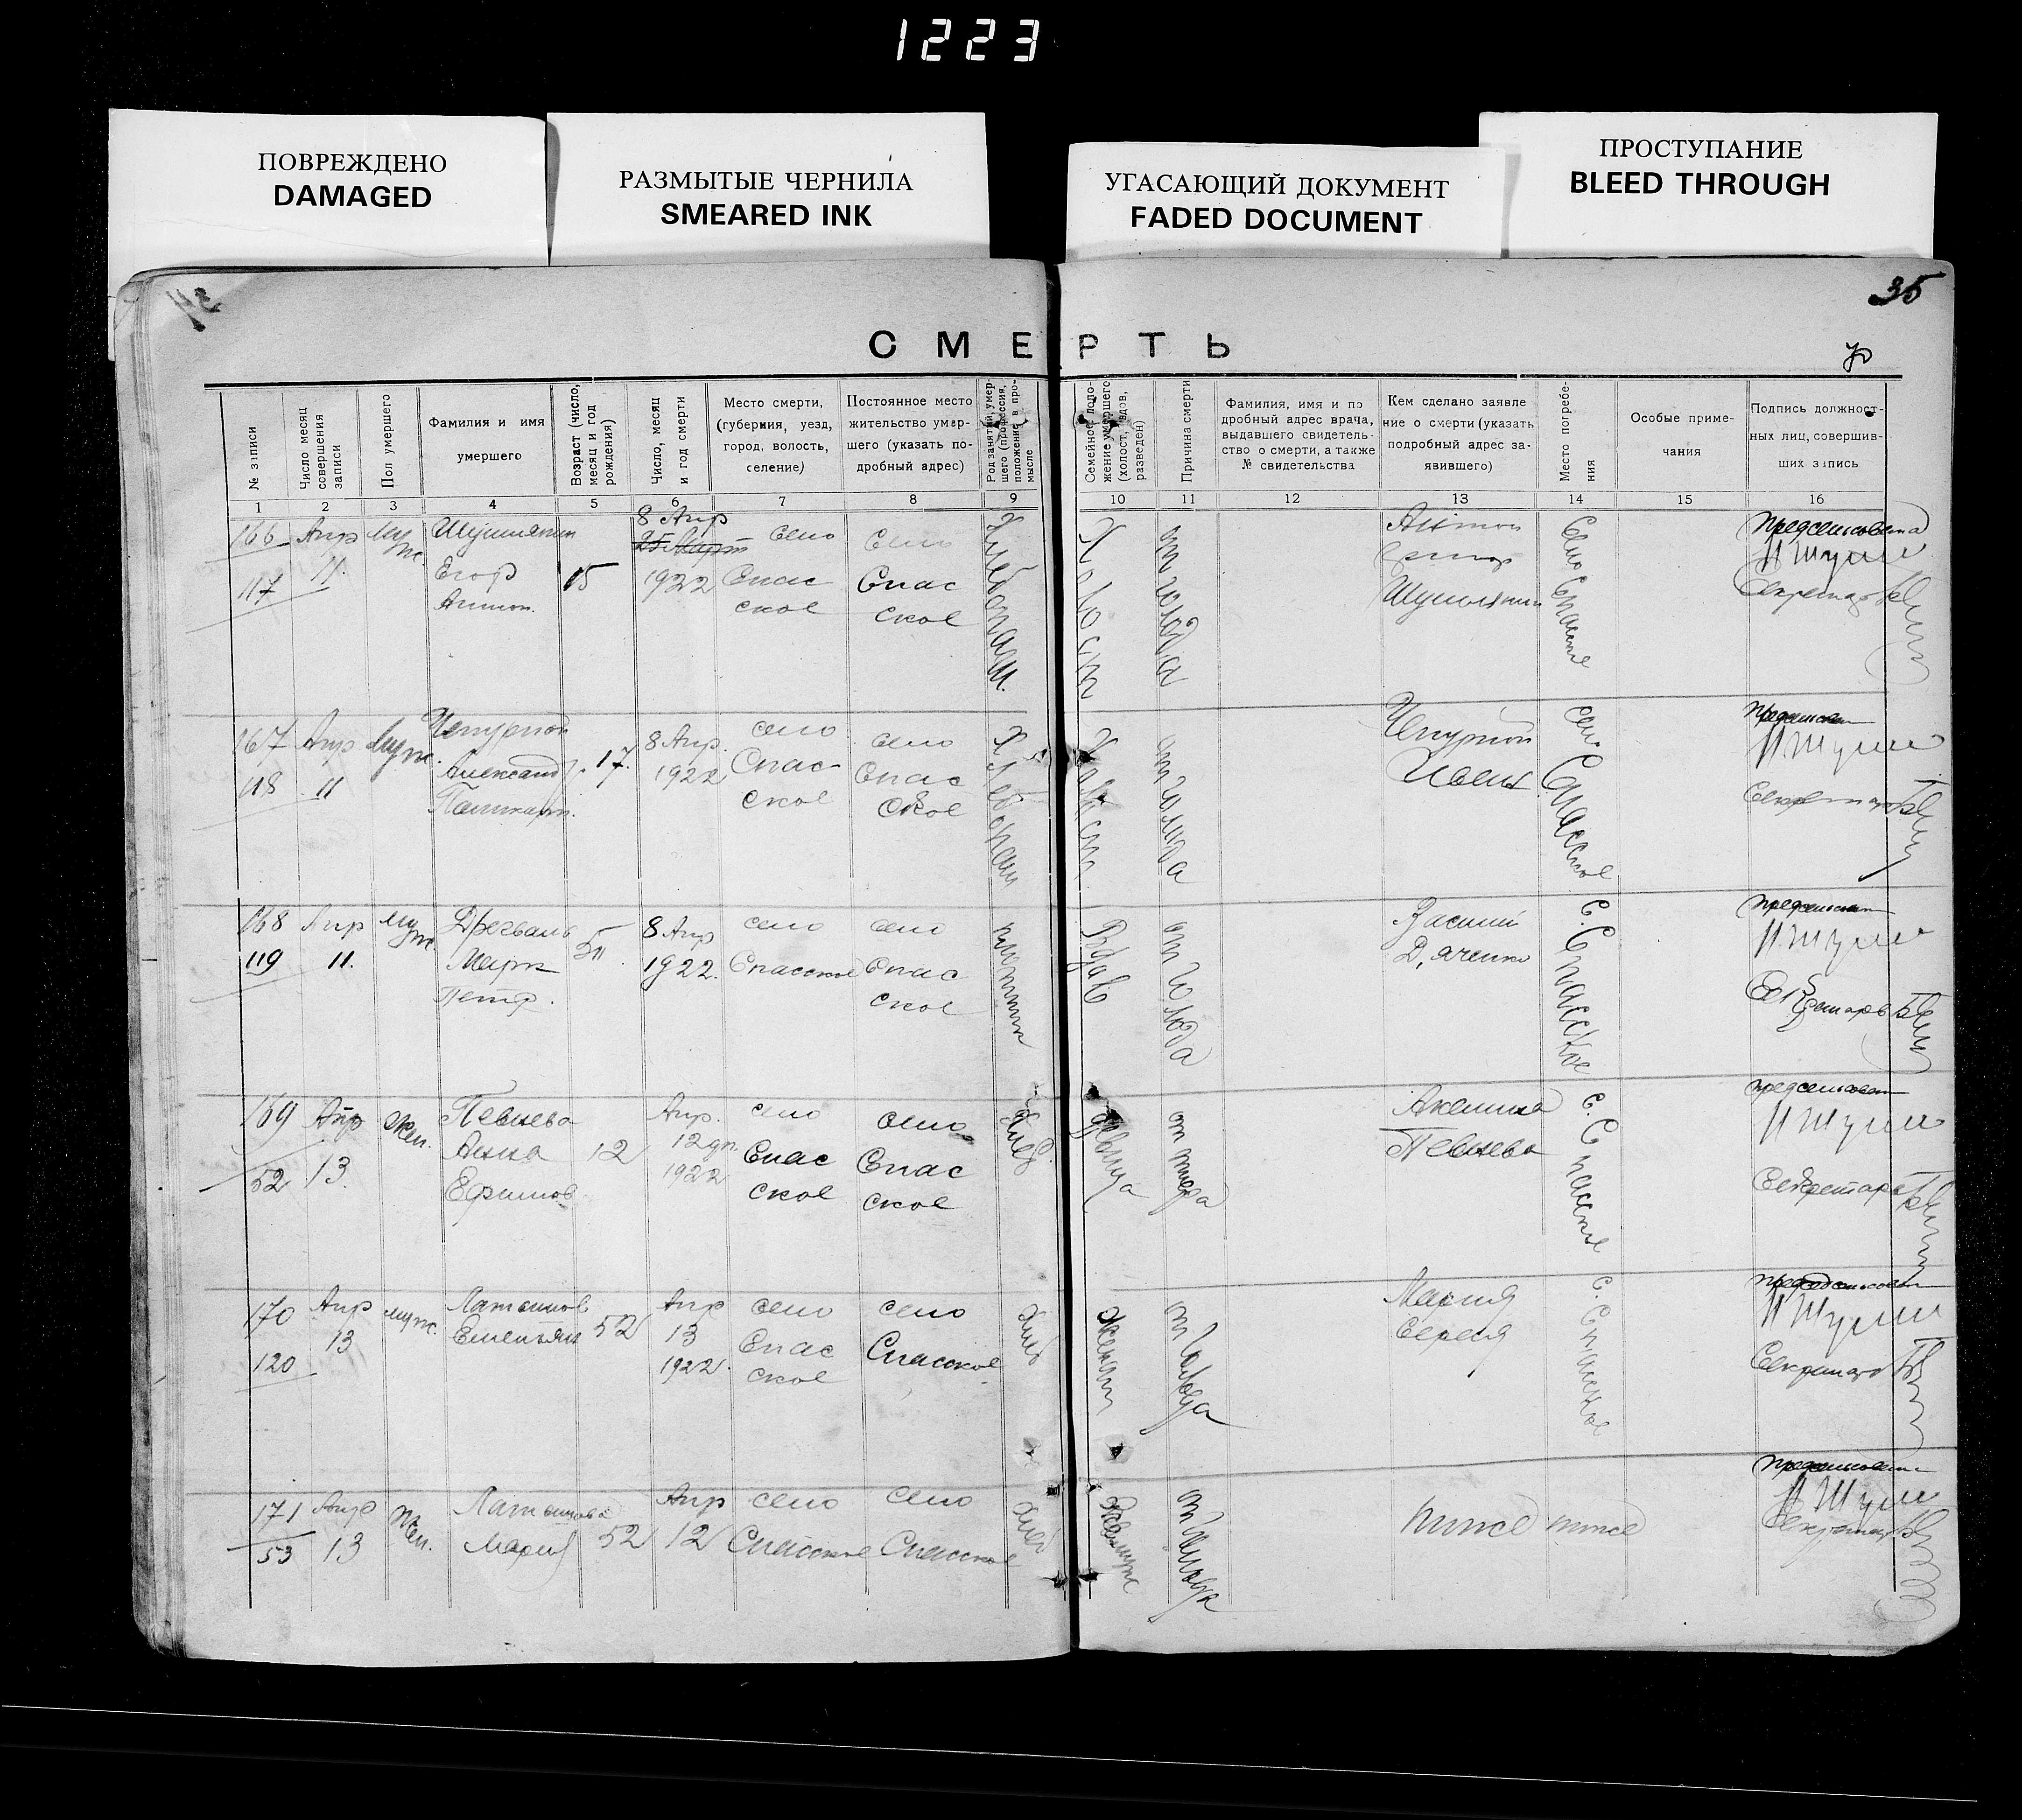 1223
ПОВРЕЖДЕНО
DAMAGED
РАЗМЫТЫЕ ЧЕРНИЛА
SMEARED INK
УГАСАЮЩИЙ ДОКУМЕНТ
FADED DOCUMENT
ПРОСТУПАНИЕ
BLEED THROUGH
35
СМЕРТЬ
№ записи
Число месяц
совершения
записи
Пол умершего
Фамилия и имя
умершего
Возраст (число,
месяц и год
рождения)
Число, месяц
и год смерти
Место смерти,
(губерния, уезд,
город, волость,
селение)
Постоянное место
жительство умер-
шего (указать по-
дробный адрес)
Род занятий, умер-
шего (профессия,
положение в про-
мысле
Семейное поло-
жение умершего
(холост, вдов,
разведен)
Причина смерти
Фамилия, имя и по
дробный адрес врача,
выдавшего свидетель-
ство о смерти, а также
№ свидетельства
Кем сделано заявле
ние о смерти (указать
подробный адрес за-
явившего)
Место погребе-
ния
Особые приме-
чания
Подпись должност-
ных лиц, совершив-
ших запись
1 2 3 4 5 6 7 8 9 10 11 12 13 14 15 16
166
117
Апр
11.
Муж.
Егор
Антон.
15
8 Апр
25 Март
1922
село
Спас
ское
село
Спас
ское
Хлебопаш.
Холост
от голода
Антон
село Спасское
Секретарь
167
118
Апр
11
Муж.
Чепурной
Александр
17.
8 Апр.
1922
село
Спас
ское
село
Спас
ское
Хлебопаш
Холост
от голода
Чепурной
село Спасское
Секретарь
168
119
Апр
11.
Муж
Марк
Петр.
8 Апр
1922.
село
Спасское
село
Спас
ское
плотник
Вдов
от голода
Дяченко
с. Спасское
Секретарь
169
52
Апр
13.
жен.
Певнева
Анна
Ефимов
12
Апр.
12 дн.
1922
село
Спас
ское
село
Спас
ское
хлеб.
девица
от тифа
Певнева
с. Спасское
Секретарь
170
120
Апр
13
муж.
Емельян
52
Апр
13
1922.
село
Спас
ское
село
Спасское
хлеб
женат
от голода
Мария
с. Спасское
Секретарь
171
53
Апр
13
жен.
Мария
52
Апр
12
село
Спасское
село
Спасское
хлеб
Замужн
от голода
тоже тоже
Секретарь